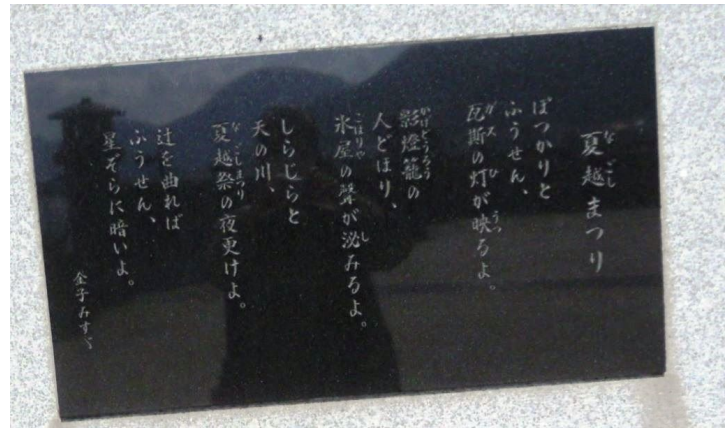 夏越まつり
ぽつかりと
ふうせん、
瓦斯の灯が映るよ。
影燈籠の
人どほり、
氷屋の聲が泌みるよ。
しらじらと
天の川、
夏越祭の夜更けよ。
辻を曲れば
ふうせん、
星ぞらに暗いよ。
金子みすゞ